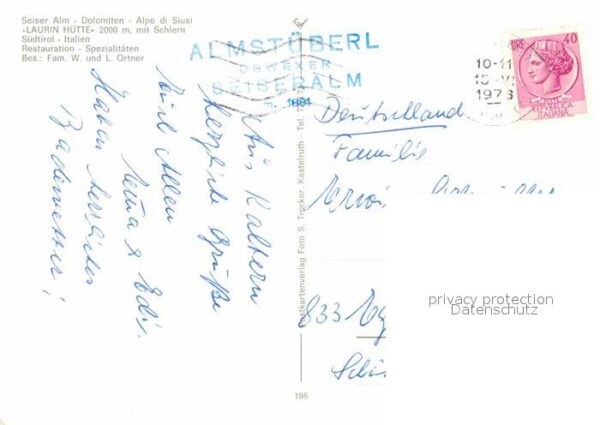 Seiser Alm - Dolomiten - Alpe di Siusi
«LAURIN HÜTTE» 2000 m, mit Schlern
Südtirol - Italien
Restauration - Spezialitäten
Bes.: Fam. W. und L. Ortner
ALMSTÜBERL
OBWEXER
SEISERALM
LIRE 40
REPVBBLICA
ITALIANA
10-11
1973
Aus Kaltern
herzliche Grüße
Euch Allen
& Edi.
Haben herrliches
Badewetter!
Postkartenverlag Foto S. Trocker, Kastelruth - Tel.
Deutschland
Familie
833
186
privacy protection
Datenschutz